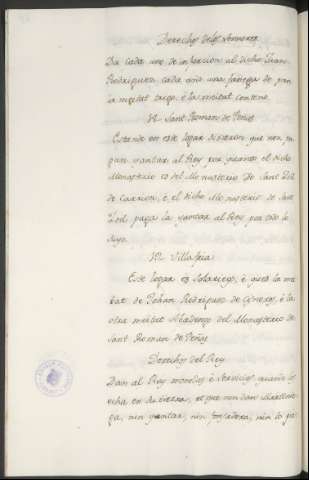 Derechos de los Señores
Da cada uno de infurcion al dicho Juan
Rodriguez cada año una fanega de pan
la meitat trigo é la meitat centeno.
Sant Roman de Peñas
Estando en este logar dixeron que non pa-
gan yantar al Rey por quanto el dicho
Monasterio es del Monasterio de Sant Zoil
de Carrion, é el dicho Monasterio de Sant
Zoil paga la yantar al Rey por todo lo
suyo.
Villafria
Este logar es Solariego, é es la me-
tat de Johan Rodriguez de Cisneros, é la
otra meitat Abadengo del Monasterio de
Sant Roman de Peñas
Derechos del Rey
Dan al Rey monedas é Servicios, quando los
echa en la tierra, et que non dan Martinie-
ga, nin yantar, nin fonsadera, nin lo pa-